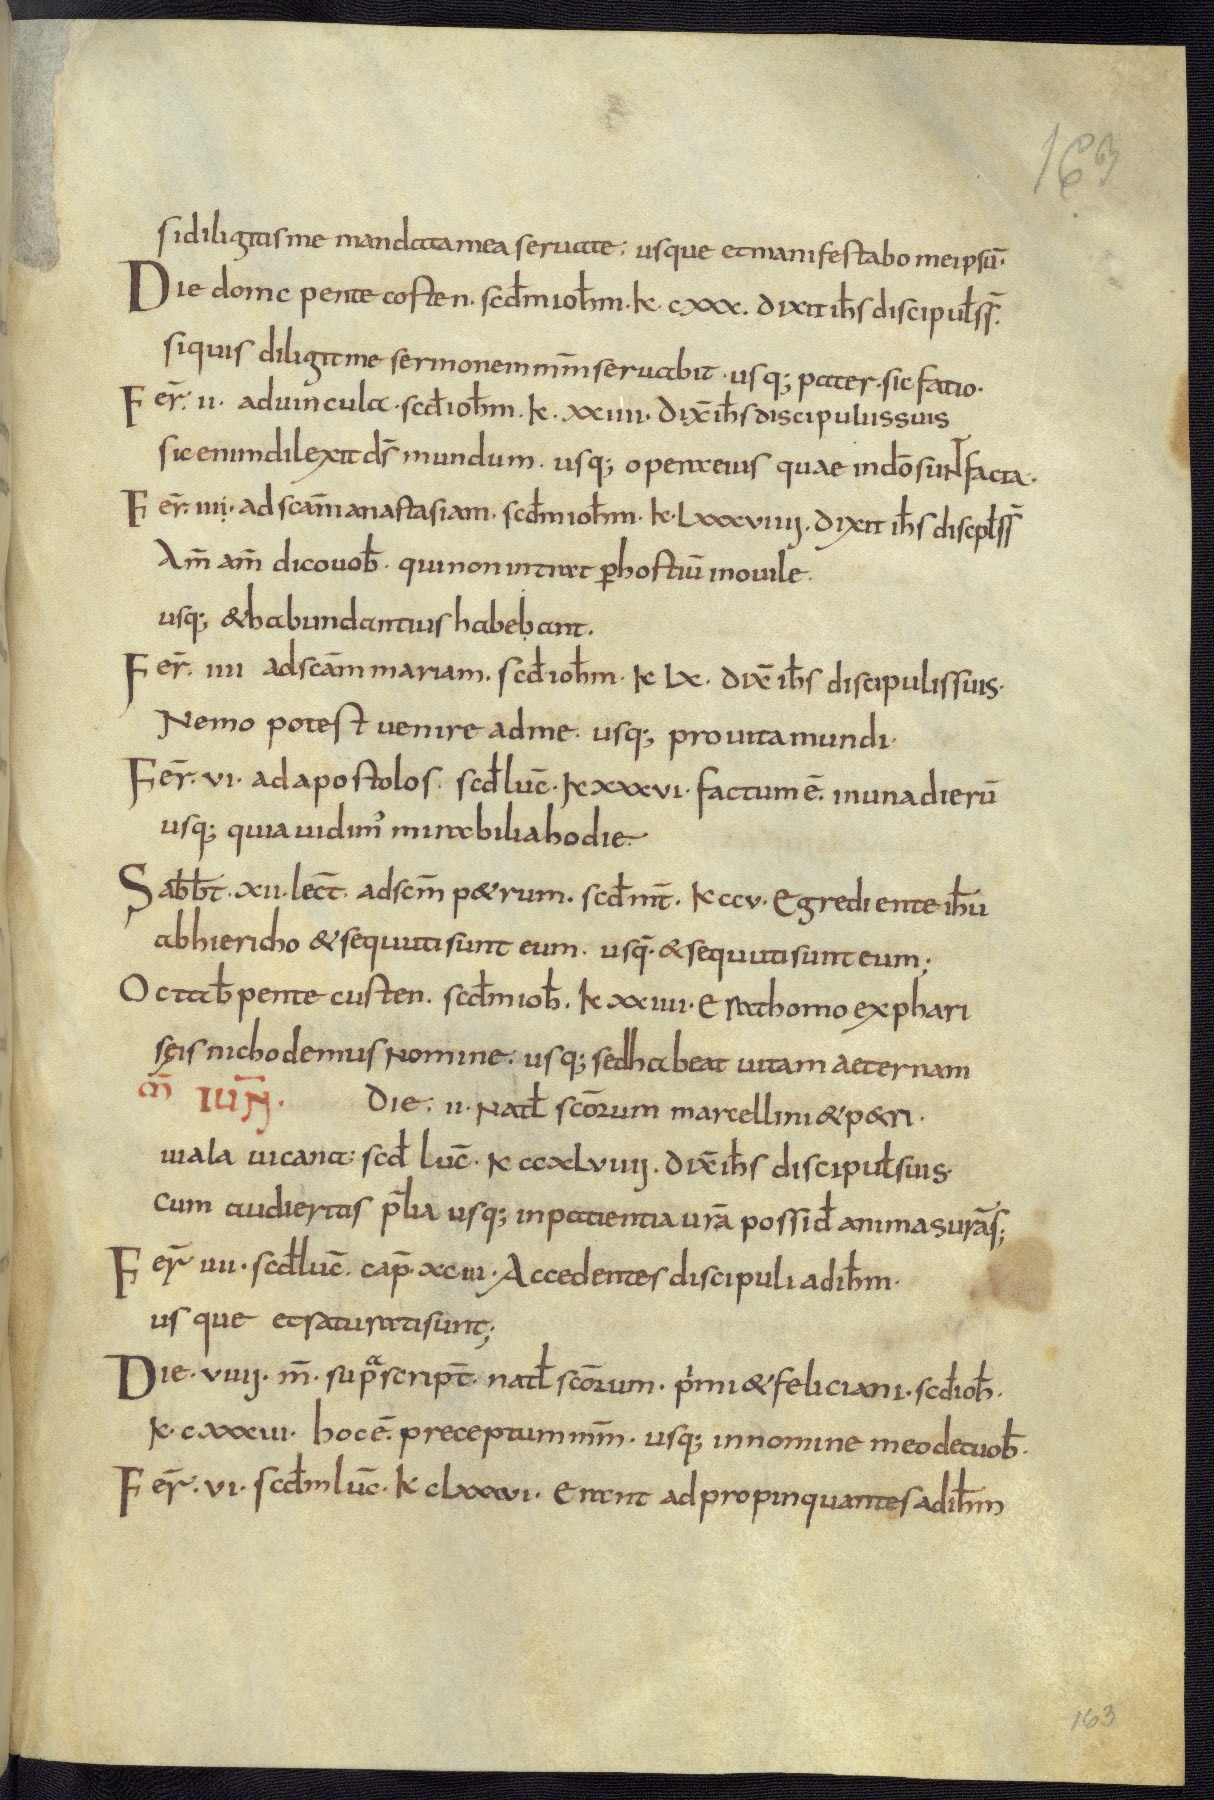 163
si diligitis me mandata mea seruate: usque et manifestabo me ipsū.
Die domc pentecosten. scđm ioħm. k cxxx. dixit iħs discipuł ss̄.
si quis diligit me sermonem mm̄ seruabit. usq; pater. sic fatio.
Fer̄. ii. ad uincula. scđ ioħm. k. xxiiii. dix̄ iħs discipuliis suis
sic enim dilexit ds̄ mundum. usq; opera eius quae in dō sunt facta.
Fer̄. iiii. ad scām anastasiam. scđm ioħm. k. lxxxviiii. dixit iħs discpł ss̄
Am̄ am̄ dico uoƀ. qui non intrat ꝑ hostiū in ouile.
usq; & habundantius habebant.
Fer̄. iiii ad scām mariam. scđ ioħm. k lx. dix̄ iħs discipulis suis.
Nemo potest uenire ad me. usq; pro uita mundi.
Fer̄. vi. ad apostolos. scđ luc̄. k xxxvi. factum ē. in una dierū
usq; quia uidim᾽ mirabilia hodie.
Sabb̄t. xii. lect̄. ad scm̄ p&rum. scđ mt̄. k ccv. Egrediente iħu
ab hiericho & sequuti sunt eum. usq̄. & sequuti sunt eum;
Octaƀ pentecusten. scđm ioħ. k xxiiii. Erat homo ex phari
sęis nichodemus nomine. usq; sed habeat uitam aeternam
m̄ IUN̄. Die. ii. natł scōrum marcellini & p&ri.
uiala uicana: scđ luc̄. k ccxlviiii. dix̄ iħs discipuł suis.
Cum audieritis p̄lia usq; in patientia urā possid̄ animas urās̄;
Fer̄ iiii. scđ luc̄. cap̄. xciii. Accedentes discipuli ad iħm.
usque et saturati sunt;
Die. viiii. m̄. supᵃscript̄. natł scōrum. p̄imi & feliciani. scđ ioħ.
k. cxxxvi. hoc ē. preceptum mm̄. usq; in nomine meo det uoƀ.
Fer̄. vi. scđm luc̄. k clxxxvi. Erant adpropinquantes ad iħm
163